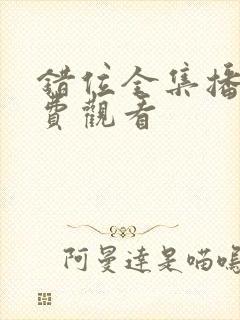 錯位全集播
費觀看
阿曼達是喵嗚